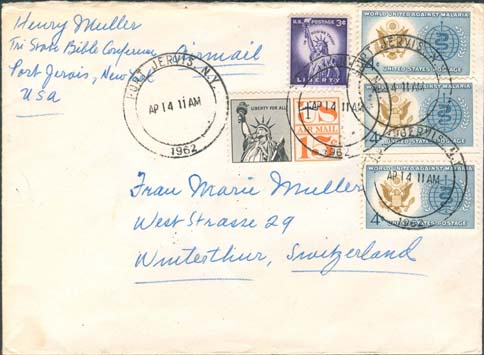 Henry Muller
Tri State Bible Conference
Port Jervis, New York
USA
Airmail
PORT JERVIS. N.Y.
AP 14 11 AM
1962
U.S. POSTAGE 3¢
LIBERTY
LIBERTY FOR ALL
US
AIR MAIL
15¢
PORT JERVIS. N.Y.
AP 14 11 AM
1962
WORLD UNITED AGAINST MALARIA
UNITED STATES POSTAGE
WORLD UNITED AGAINST MALARIA
4¢
UNITED STATES POSTAGE
AP 14 11 AM
WORLD UNITED AGAINST MALARIA
4¢
UNITED STATES POSTAGE
AP 14 11 AM
1962
Frau Marie Muller
West Strasse 29
Winterthur, Switzerland